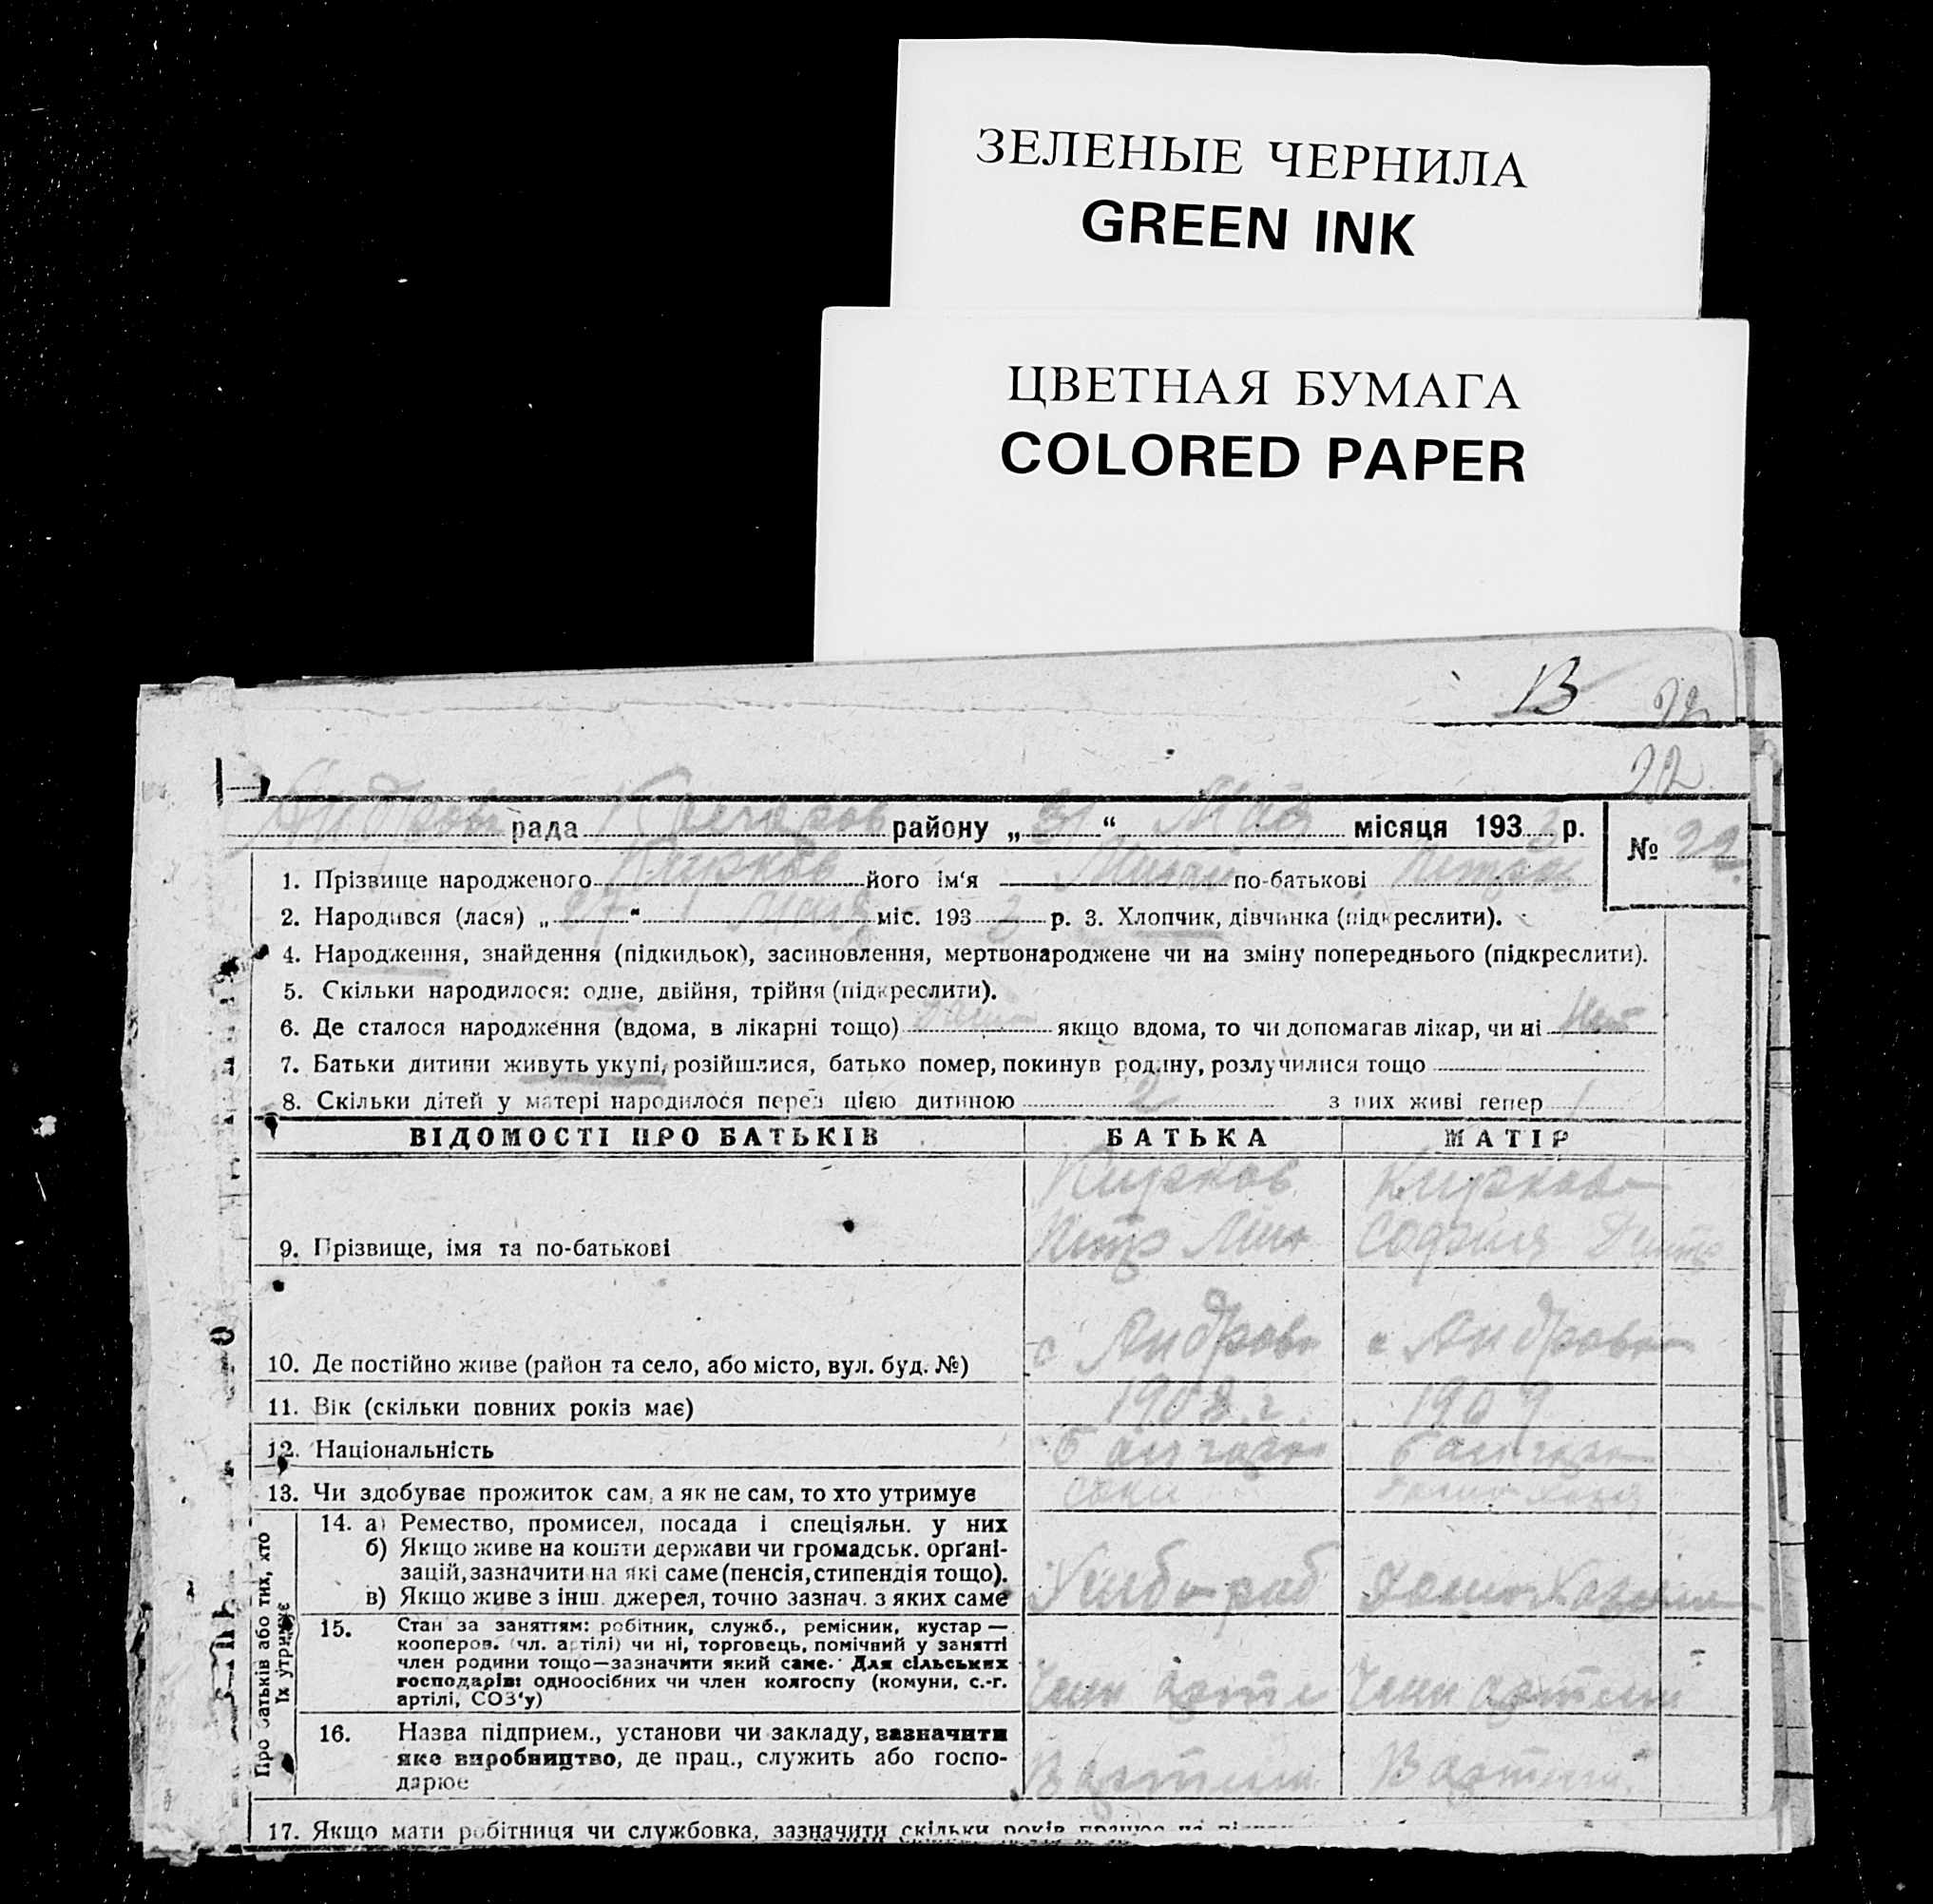 ЗЕЛЕНЫЕ ЧЕРНИЛА
GREEN INK
ЦВЕТНАЯ БУМАГА
COLORED PAPER
В 22
22.
рада району „31“ Мая місяця 1933 р. № 22.
1. Прізвище народженого Кирков його ім'я по-батькові Петров
2. Народився (лася) „27“ Мая міс. 1933 р. 3. Хлопчик, дівчинка (підкреслити).
4. Народження, знайдення (підкидьок), засиновлення, мертвонароджене чи на зміну попереднього (підкреслити).
5. Скільки народилося: одне, двійня, трійня (підкреслити).
6. Де сталося народження (вдома, в лікарні тощо) якщо вдома, то чи допомагав лікар, чи ні Нет
7. Батьки дитини живуть укупі, розійшлися, батько помер, покинув родину, розлучилися тощо
8. Скільки дітей у матері народилося перед цією дитиною 2 з них живі тепер 1
ВІДОМОСТІ ПРО БАТЬКІВ БАТЬКА МАТІР
Кирков Киркова
9. Прізвище, імя та по-батькові Петр Мих София Дмитр
10. Де постійно живе (район та село, або місто, вул. буд. №) с Андровка с Андровка
11. Вік (скільки повних років має) 1908 г. 1909
12. Національність
13. Чи здобуває прожиток сам, а як не сам, то хто утримує
Про батьків або тих, хто їх утримує
14. а) Ремество, промисел, посада і спеціяльн. у них
б) Якщо живе на кошти держави чи громадськ. органі-
зацій, зазначити на які саме (пенсія, стипендія тощо).
в) Якщо живе з інш. джерел, точно зазнач. з яких саме Хлебораб
15. Стан за заняттям: робітник, служб., ремісник, кустар —
кооперов. (чл. артілі) чи ні, торговець, помічний у занятті
член родини тощо—зазначити який саме. Для сільських
господарів: одноосібних чи член колгоспу (комуни, с.-г.
артілі, СОЗ'у) Член артели Член артели
16. Назва підприєм., установи чи закладу, зазначити
яке виробництво, де прац., служить або госпо-
дарює В артели В артели
17. Якщо мати робітниця чи службовка, зазначити скільки років працює